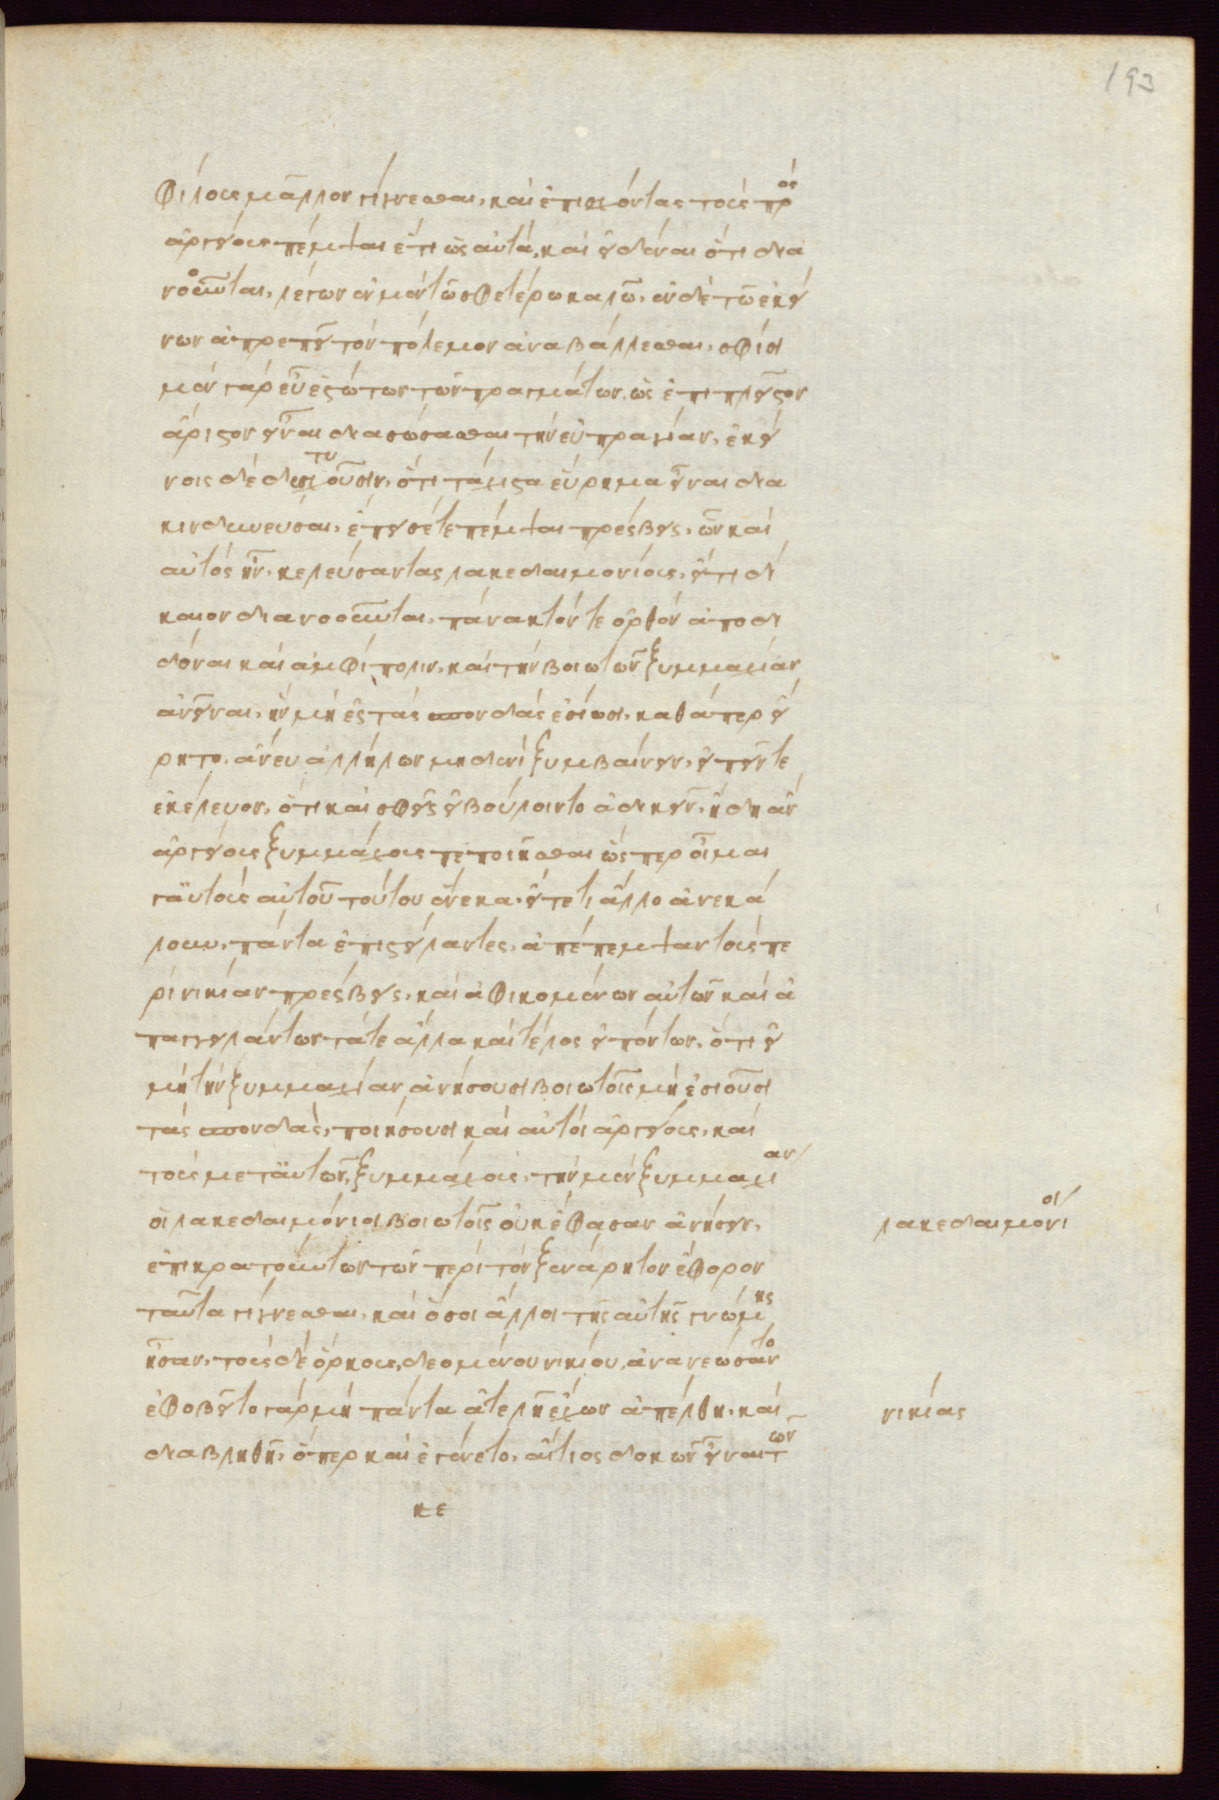 193
φίλους μᾶλλον γίγνεσθαι, καὶ ἐπισχόντας τοὺς πρὸς
ἀργείους πέμψαι ἔτι ὡς αὐτά, καὶ εἰδέναι ὅτι δια
νοοῦνται, λέγων ἐν μὲν τῶ σφετέρω καλῶ, ἐν δὲ τῶ ἐκεί
νων ἀπρεπεῖ τὸν πόλεμον ἀναβάλλεσθαι, σφίσι
μὲν γὰρ εὖ ἑστώτων τῶν πραγμάτων, ὡς ἐπιπλεῖστον
ἄριστον εἶναι διασώσασθαι τὴν εὐπραγίαν, ἐκεί
νοις δὲ δυστυχοῦσιν, ὅτι τάχιστα εὕρημα εἶναι δια
κινδυνεῦσαι, ἔπεισέ τε πέμψαι πρέσβεις, ὧν καὶ
αὐτὸς ἦν, κελεύσαντας λακεδαιμονίους, εἴ τι δί
καιον διανοοῦνται, πάνακτόν τε ὀρθὸν ἀποδι
δόναι καὶ ἀμφίπολιν, καὶ τὴν βοιωτῶν ξυμμαχίαν
ἀνεῖναι, ἢν μὴ ἐς τὰς σπονδὰς ἐσίωσι, καθάπερ εἴ
ρητο, ἄνευ ἀλλήλων μηδενὶ ξυμβαίνειν, εἰπεῖν τε
ἐκέλευον, ὅτι καὶ σφεῖς εἰ βούλοιντο ἀδικεῖν, ἤδη ἂν
ἀργείους ξυμμάχους πεποιῆσθαι ὥσπερ οἶμαι
γ᾽αὐτοὺς αὐτοῦ τούτου ἕνεκα, εἴ τέ τι ἄλλο ἀνεκά
λουν, πάντα ἐπιστείλαντες, ἀπέπεμψαν τοὺς πε
ρὶ νικίαν πρέσβεις, καὶ ἀφικομένων αὐτῶν καὶ ἀ
παγγειλάντων τά τε ἄλλα καὶ τέλος εἰπόντων, ὅτι εἰ
μὴ τὴν ξυμμαχίαν ἀνήσουσι βοιωτοῖς μὴ ἐσιοῦσι
τὰς σπονδὰς, ποιήσουσι καὶ αὐτοὶ ἀργείους, καὶ
τοὺς μετ᾽αὐτῶν, ξυμμάχους, τὴν μὲν ξυμμαχίαν
οἱ λακεδαιμόνιοι βοιωτοῖς οὐκ ἔφασαν ἀνήσειν,
ἐπικρατούντων τῶν περὶ τὸν ξενάρητον ἔφορον
ταῦτα γίγνεσθαι, καὶ ὅσοι ἄλλοι τῆς αὐτῆς γνώμης
ἦσαν, τοὺς δὲ ὅρκους, δεομένου νικίου, ἀνανεώσαντο
ἐφοβεῖτο γὰρ μὴ πάντα ἀτελῆ ἔχων ἀπέλθη, καὶ
διαβληθῆ, ὅπερ καὶ ἐγένετο, αἴτιος δοκῶν εἶναι τῶν
κε
λακεδαιμόνιοι
νικίας